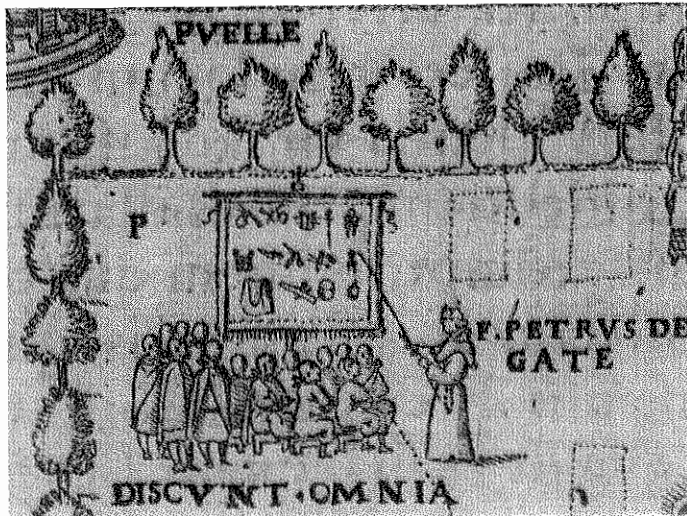 PVELLE
P
F. PETRVS DE
GATE
DISCVNT · OMNIA